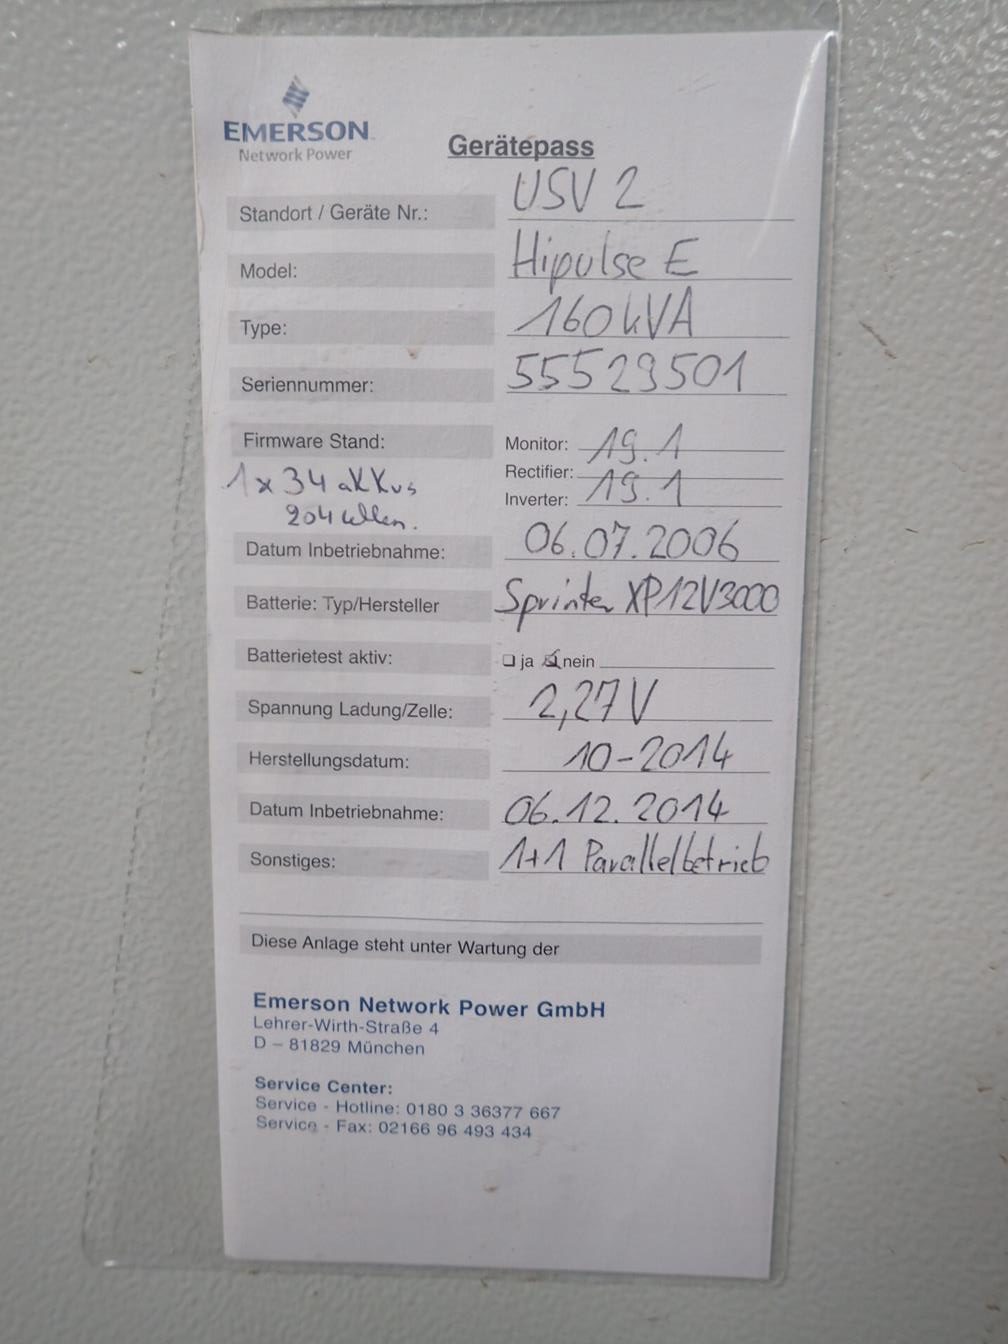 EMERSON
Network Power
Gerätepass
Standort / Geräte Nr.: USV 2
Model: Hipulse E
Type: 160kVA
Seriennummer: 55529501
Firmware Stand: Monitor: 19.1
Rectifier:
Inverter: 19.1
1x34 akkus
204 Zellen.
Datum Inbetriebnahme: 06.07.2006
Batterie: Typ/Hersteller Sprinter XP12V3000
Batterietest aktiv: ❑ ja ☒ nein
Spannung Ladung/Zelle: 2,27V
Herstellungsdatum: 10-2014
Datum Inbetriebnahme: 06.12.2014
Sonstiges: 1+1 Parallelbetrieb
Diese Anlage steht unter Wartung der
Emerson Network Power GmbH
Lehrer-Wirth-Straße 4
D – 81829 München
Service Center:
Service - Hotline: 0180 3 36377 667
Service - Fax: 02166 96 493 434